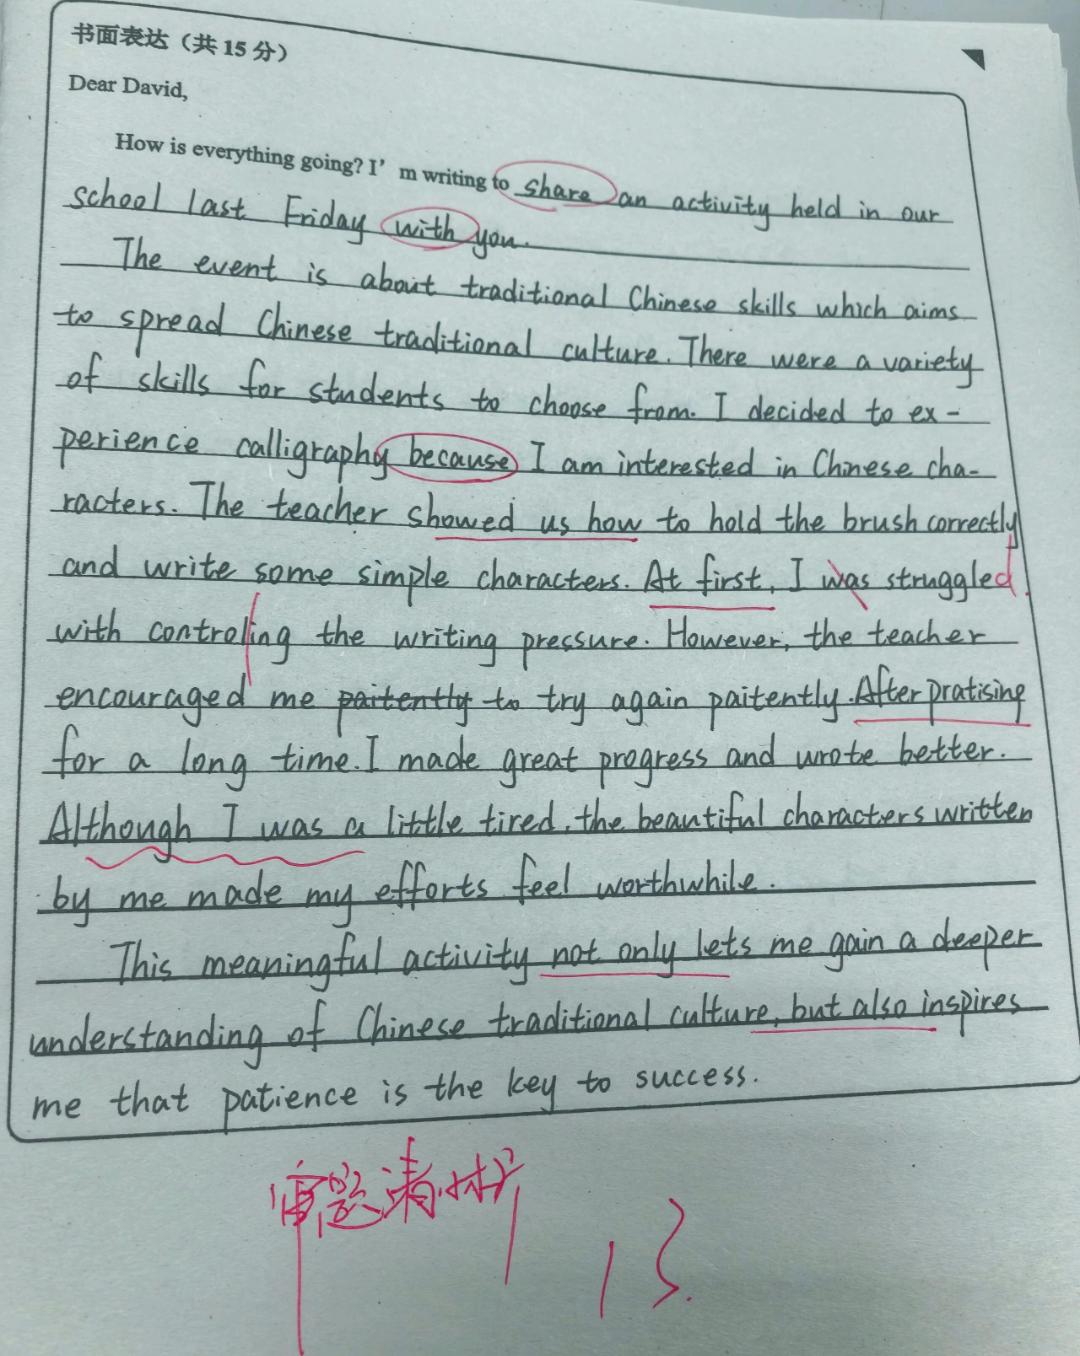 书面表达（共 15 分）
Dear David,
How is everything going? I'm writing to share an activity held in our
school last Friday with you.
The event is about traditional Chinese skills which aims
to spread Chinese traditional culture. There were a variety
of skills for students to choose from. I decided to ex-
perience calligraphy because I am interested in Chinese cha-
racters. The teacher showed us how to hold the brush correctly
and write some simple characters. At first, I was struggled
with controling the writing pressure. However, the teacher
encouraged me paitently to try again paitently. After pratising
for a long time. I made great progress and wrote better.
Although I was a little tired, the beautiful characters written
by me made my efforts feel worthwhile.
This meaningful activity not only lets me gain a deeper
understanding of Chinese traditional culture, but also inspires
me that patience is the key to success.
审题清晰
13.